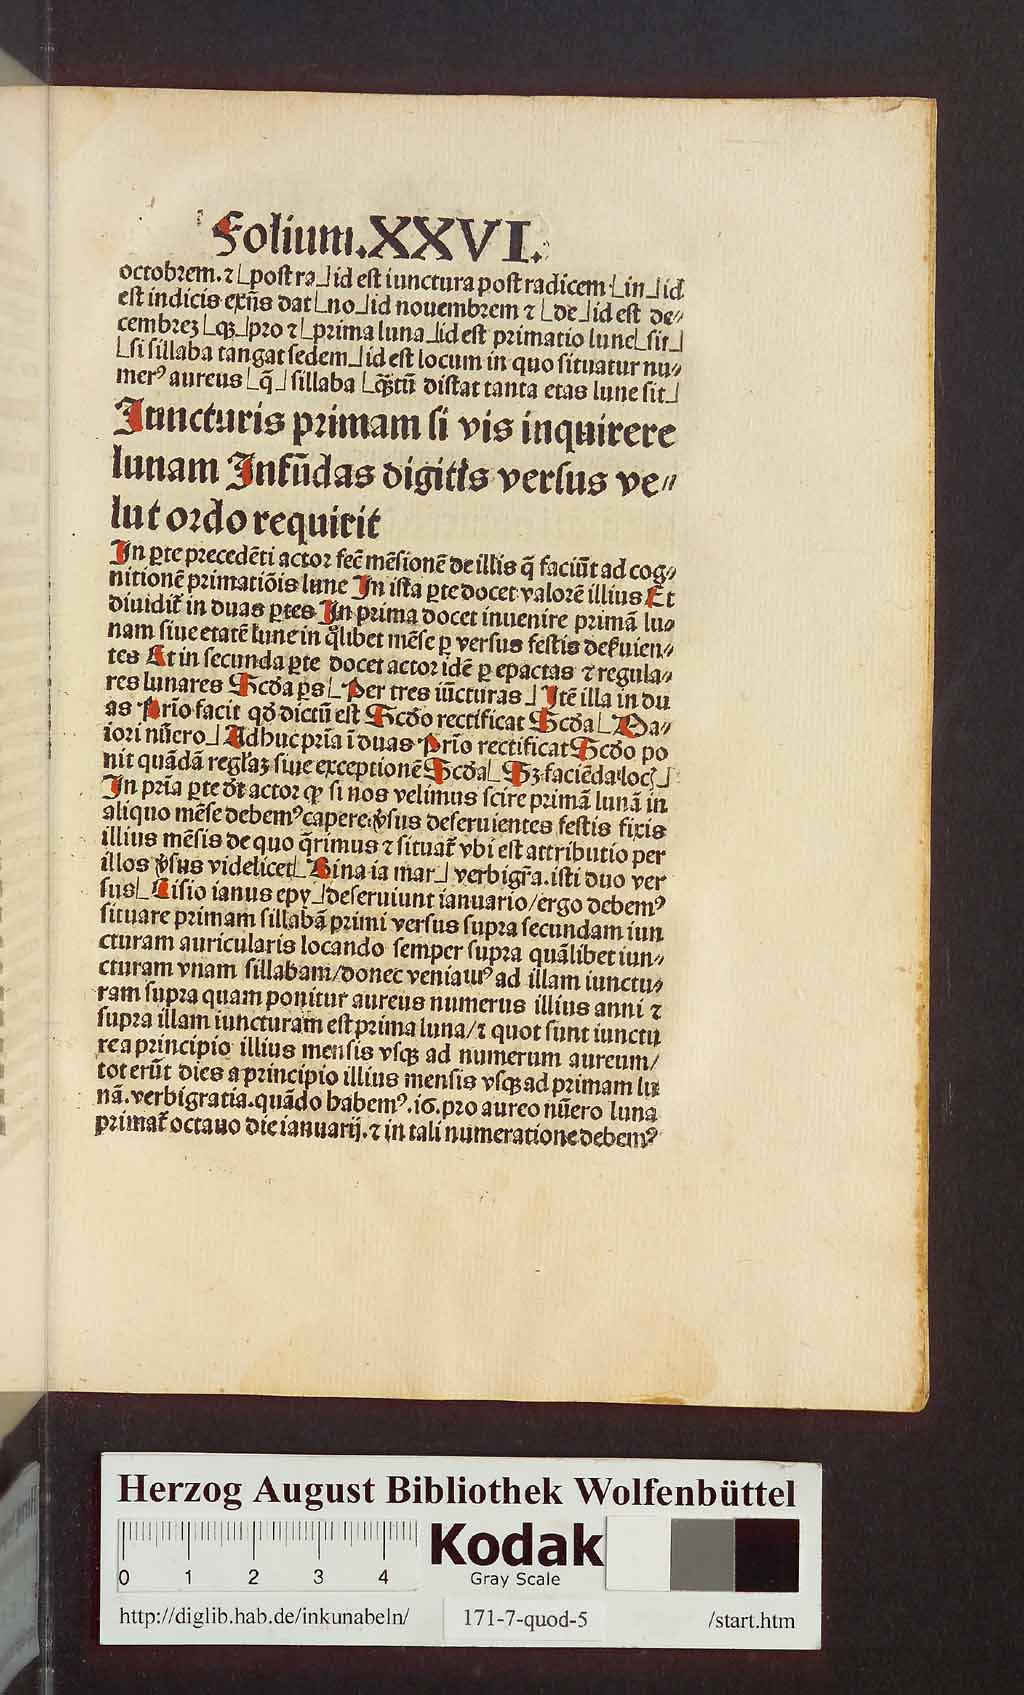 Folium.XXVI.
octobrem. ⁊ ⌊post ra⌋ id est iunctura post radicem ⌊in⌋ id
est indicis exn̄s dat ⌊no⌋ id nouembrem ⁊ ⌊de⌋ id est de⸗
cembreꝫ ⌊qꝫ⌋ pro ⁊ ⌊prima luna⌋ id est primatio lune⌊sit⌋
⌊si sillaba tangat sedem⌋ id est locum in quo situatur nu⸗
merꝰ aureus ⌊q̄⌋ sillaba ⌊q̄ꝫtū distat tanta etas lune sit⌋
Iuncturis primam si vis inquirere
lunam Infūdas digitis versus ve⸗
lut ordo requirit
In ꝑte precedēti actor fec̄ mēsionē de illis q̄ faciūt ad cog⸗
nitionē primatiōis lune In ista ꝑte docet valorē illius Et
diuidit̄ in duas ꝑtes In prima docet inuenire primā lu⸗
nam siue etatē lune in q̄libet mēse ꝑ versus festis deẜuien⸗
tes Et in secunda ꝑte docet actor idē ꝑ epactas ⁊ regula⸗
res lunares Scd̄a ꝑs ⌊Per tres iūcturas⌋ Itē illa in du
as Prīo facit qd̄ dictū est Scd̄o rectificat Scd̄a ⌊Ma⸗
iori nūero⌋ Adhuc pria ī duas Prīo rectificat Scd̄o po
nit quādā regl̄aꝫ siue exceptionē Scd̄a ⌊Sꝫ faciēda loc⌋
In pria ꝑte dt̄ actor ꝙ si nos velimus scire primā lunā in
aliquo mēse debemꝰ capere v̄sus deseruientes festis fixis
illius mēsis de quo q̄rimus ⁊ situat̄ vbi est attributio per
illos v̄sus videlicet⌊Bina ia mar⌋ verbigr̄a. isti duo ver
sus⌊Cisio ianus epy⌋ deseruiunt ianuario/ergo debemꝰ
situare primam sillabā primi versus supra secundam iun
cturam auricularis locando semper supra quālibet iun⸗
cturam vnam sillabam/donec veniamꝰ ad illam iunctu⸗
ram supra quam ponitur aureus numerus illius anni ⁊
supra illam iuncturam est prima luna/⁊ quot sunt iunctu
re a principio illius mensis vsqꝫ ad numerum aureum/
tot erūt dies a principio illius mensis vsqꝫ ad primam lu
nā. verbigratia. quādo habemꝰ .16. pro aureo nūero luna
primat̄ octauo die ianuarij. ⁊ in tali numeratione debemꝰ
Herzog August Bibliothek Wolfenbüttel
Kodak
Gray Scale
0 1 2 3 4
http://diglib.hab.de/inkunabeln/ 171-7-quod-5 /start.htm